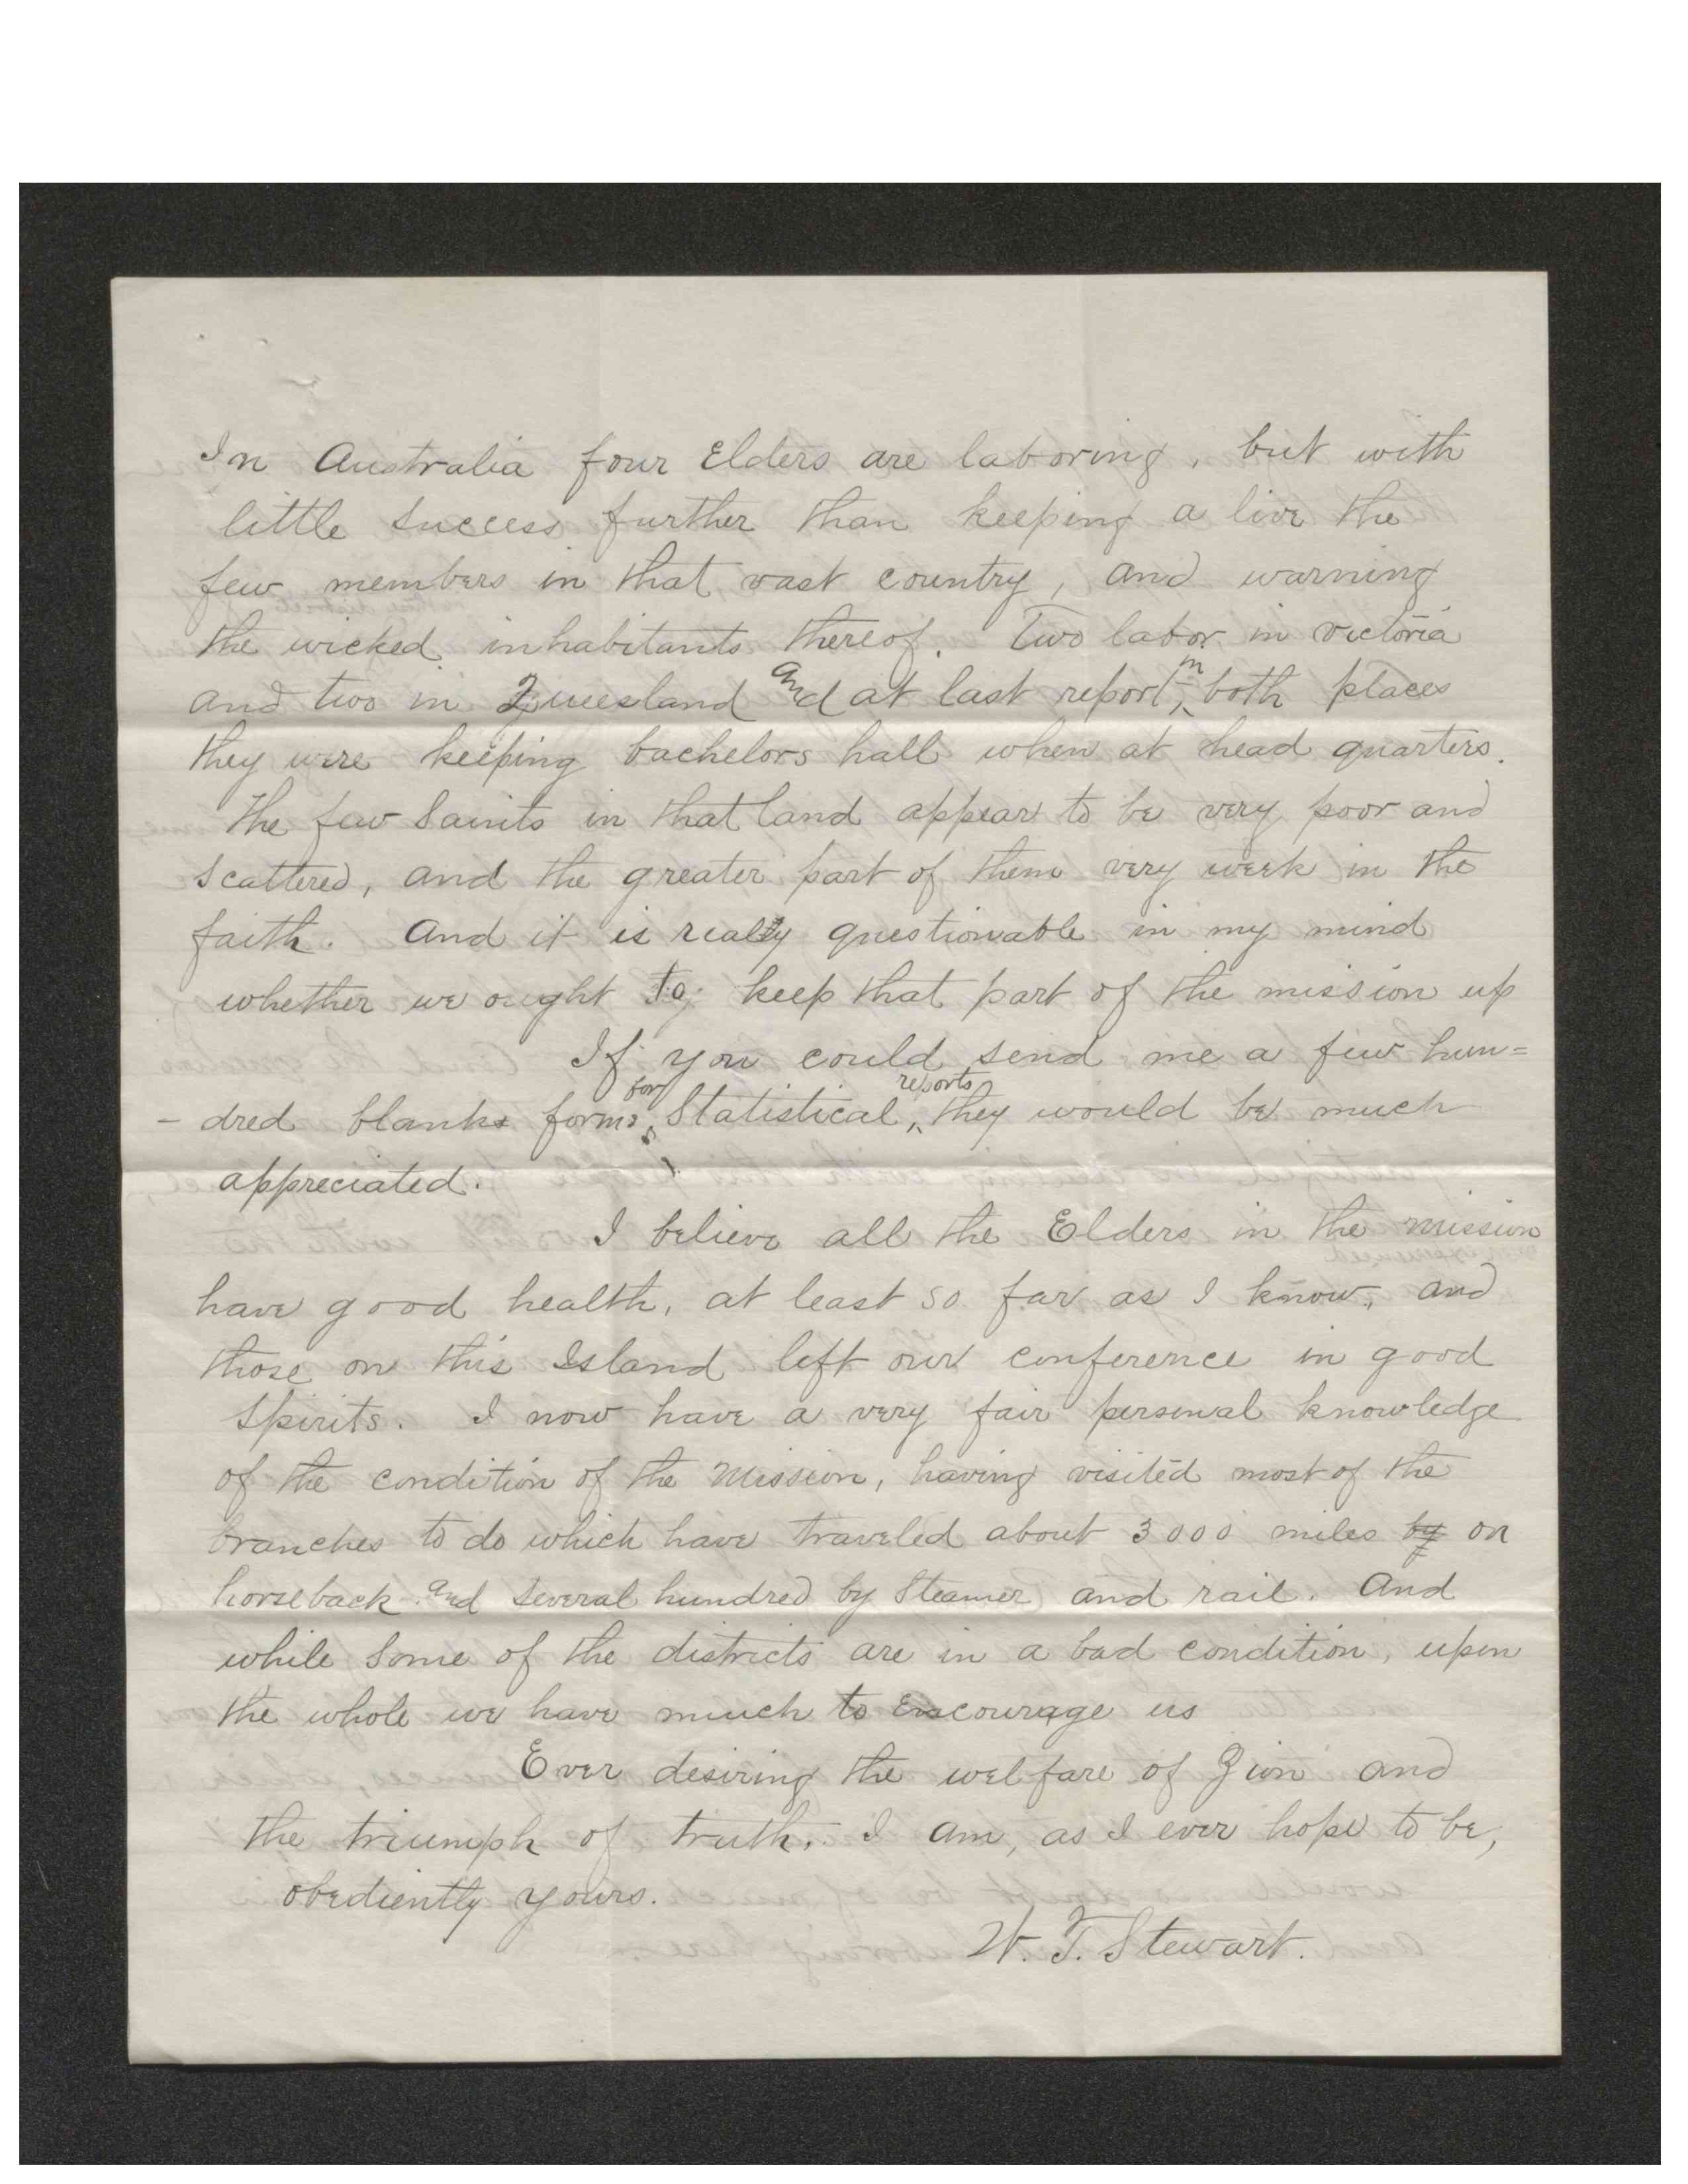 In Australia four Elders are laboring, but with
little success further than keeping a live the
few members in that vast country, and warning
the wicked inhabitants thereof. Two labor in Victoria
and two in Queesland and at last report, in both places
they were keeping bachelors hall when at head quarters.
The few Saints in that land appear to be very poor and
scattered, and the greater part of them very week in the
faith. And it is really questionable in my mind
whether we ought to keep that part of the mission up
If you could send me a few hun=
- dred blanks forms for Statistical reports, they would be much
appreciated.
I believe all the Elders in the mission
have good health, at least so far as I know, and
those on this Island left our conference in good
spirits. I now have a very fair personal knowledge
of the condition of the Mission, having visited most of the
branches to do which have traveled about 3000 miles by on
horseback and several hundred by Steamer and rail. And
while some of the districts are in a bad condition, upon
the whole we have much to encourage us
Ever desiring the welfare of Zion and
the triumph of truth, I am, as I ever hope to be,
obediently yours.
W. T. Stewart.